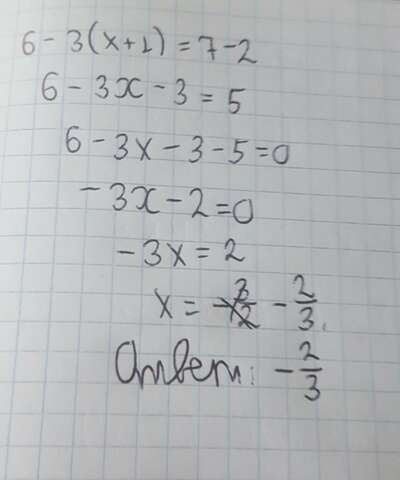 6 - 3(x+1) = 7-2
6 - 3x - 3 = 5
6 - 3x - 3 - 5 = 0
-3x - 2 = 0
-3x = 2
x = - 2/3.
Ответ: - 2/3